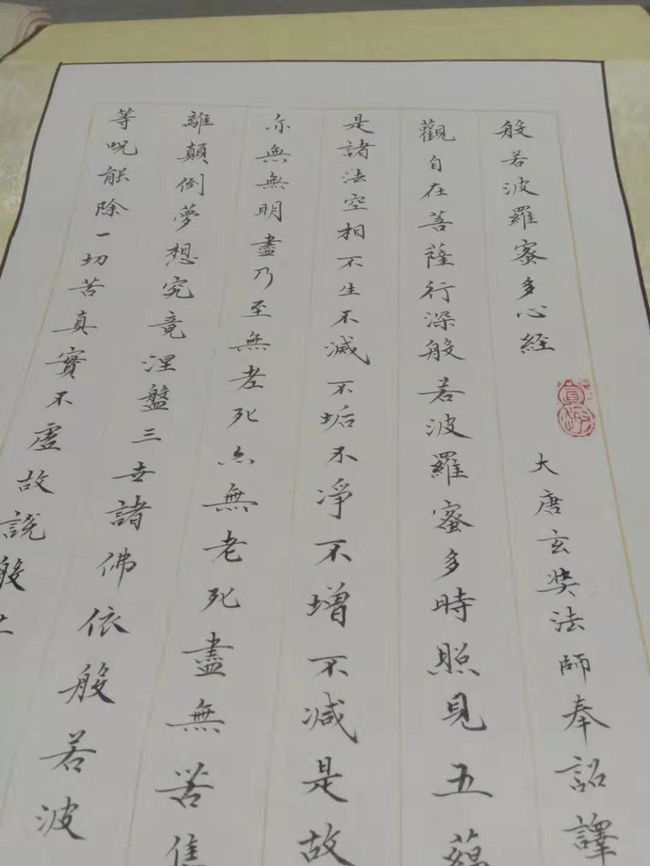 般若波羅蜜多心經
大唐玄奘法師奉詔譯
觀自在菩薩行深般若波羅蜜多時照見五蘊
是諸法空相不生不滅不垢不淨不增不減是故
亦無無明盡乃至無老死亦無老死盡無苦集
離顛倒夢想究竟涅盤三世諸佛依般若波
等呪能除一切苦真實不虛故說般